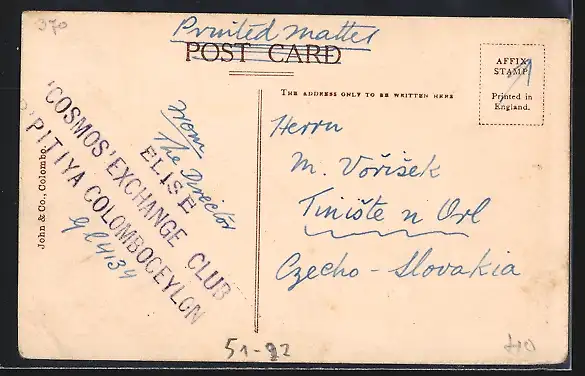 370
Printed matter
POST CARD
AFFIX
STAMP
Printed in
England.
THE ADDRESS ONLY TO BE WRITTEN HERE
John & Co., Colombo.
from
The Director
ELISE
'COSMOS' EXCHANGE CLUB
PITIYA COLOMBOCEYLON
Herrn
M. Voříšek
Tiniště n Orl
Czecho-Slovakia
51-92